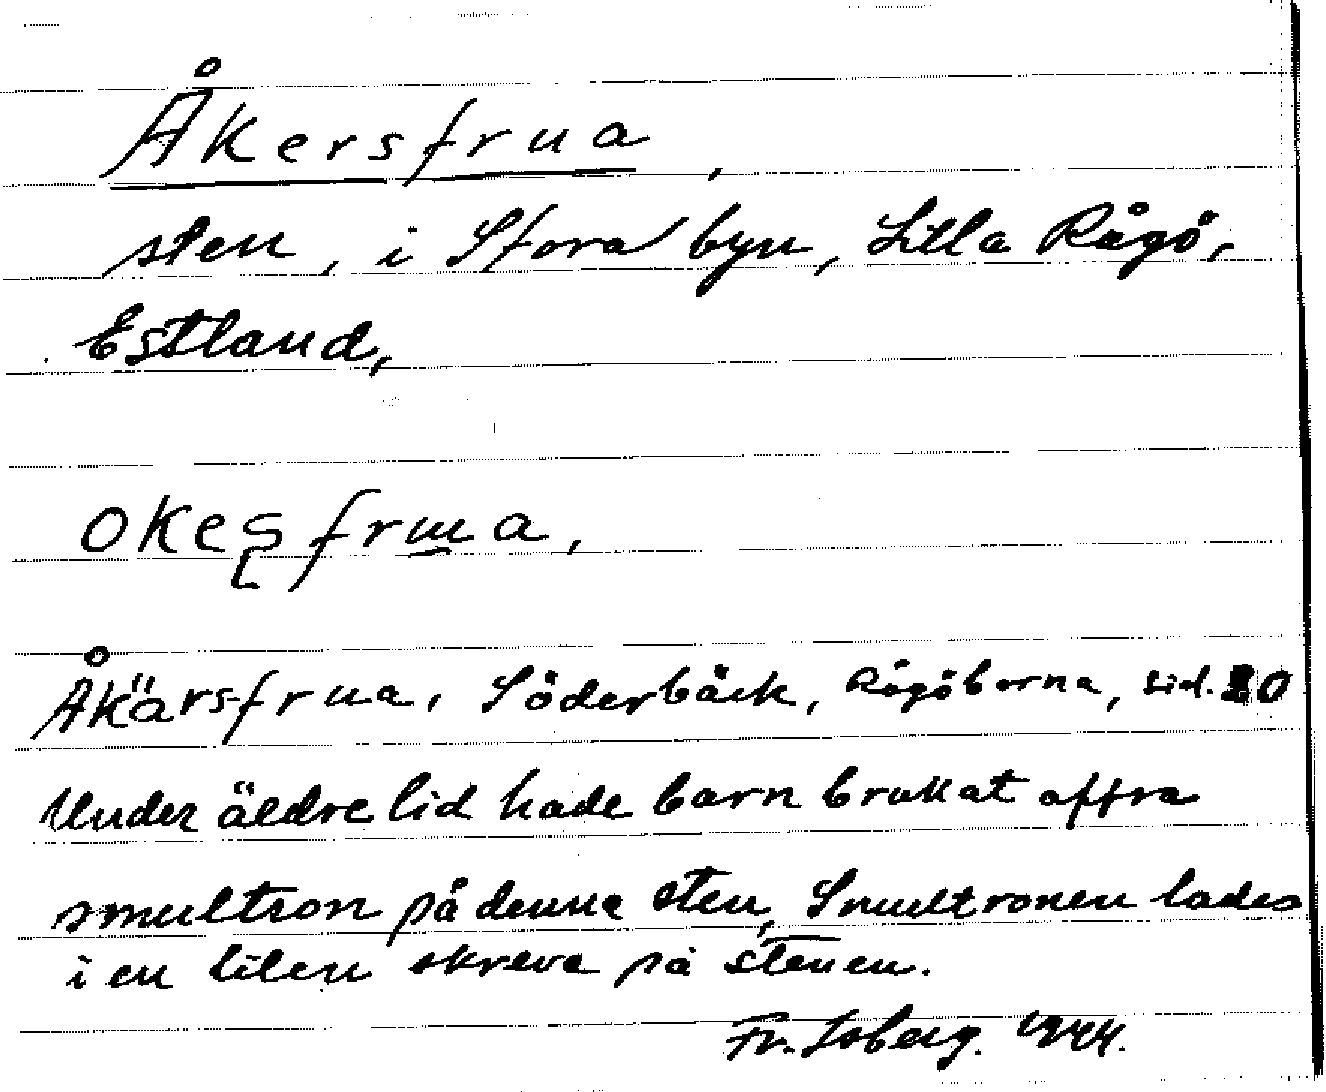 Åkersfrua,
sten, i Stora byn, Lilla Rågö,
Estland,
okesfrua,
Åkärsfrua, Söderbäck, Rågöborna, sid. 20
Under äldre tid hade barn brukat offra
smultron på denna sten, Smultronen lades
i en liten skreva på stenen.
Fr. Isberg. 1944.